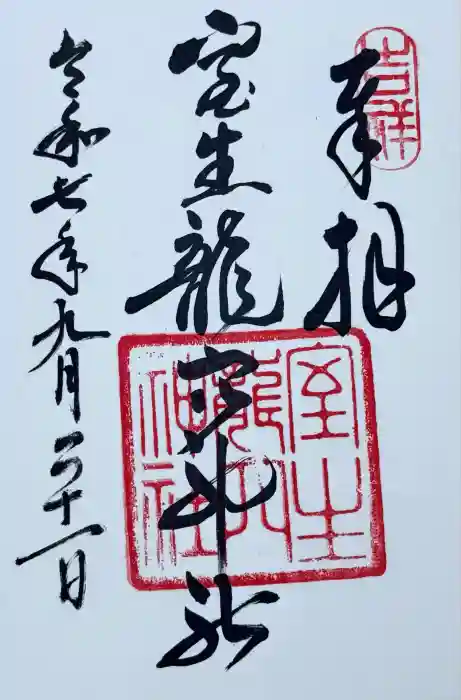 吉祥
奉拝
室生龍穴神社
室生
龍穴
神社
令和七年九月二十一日